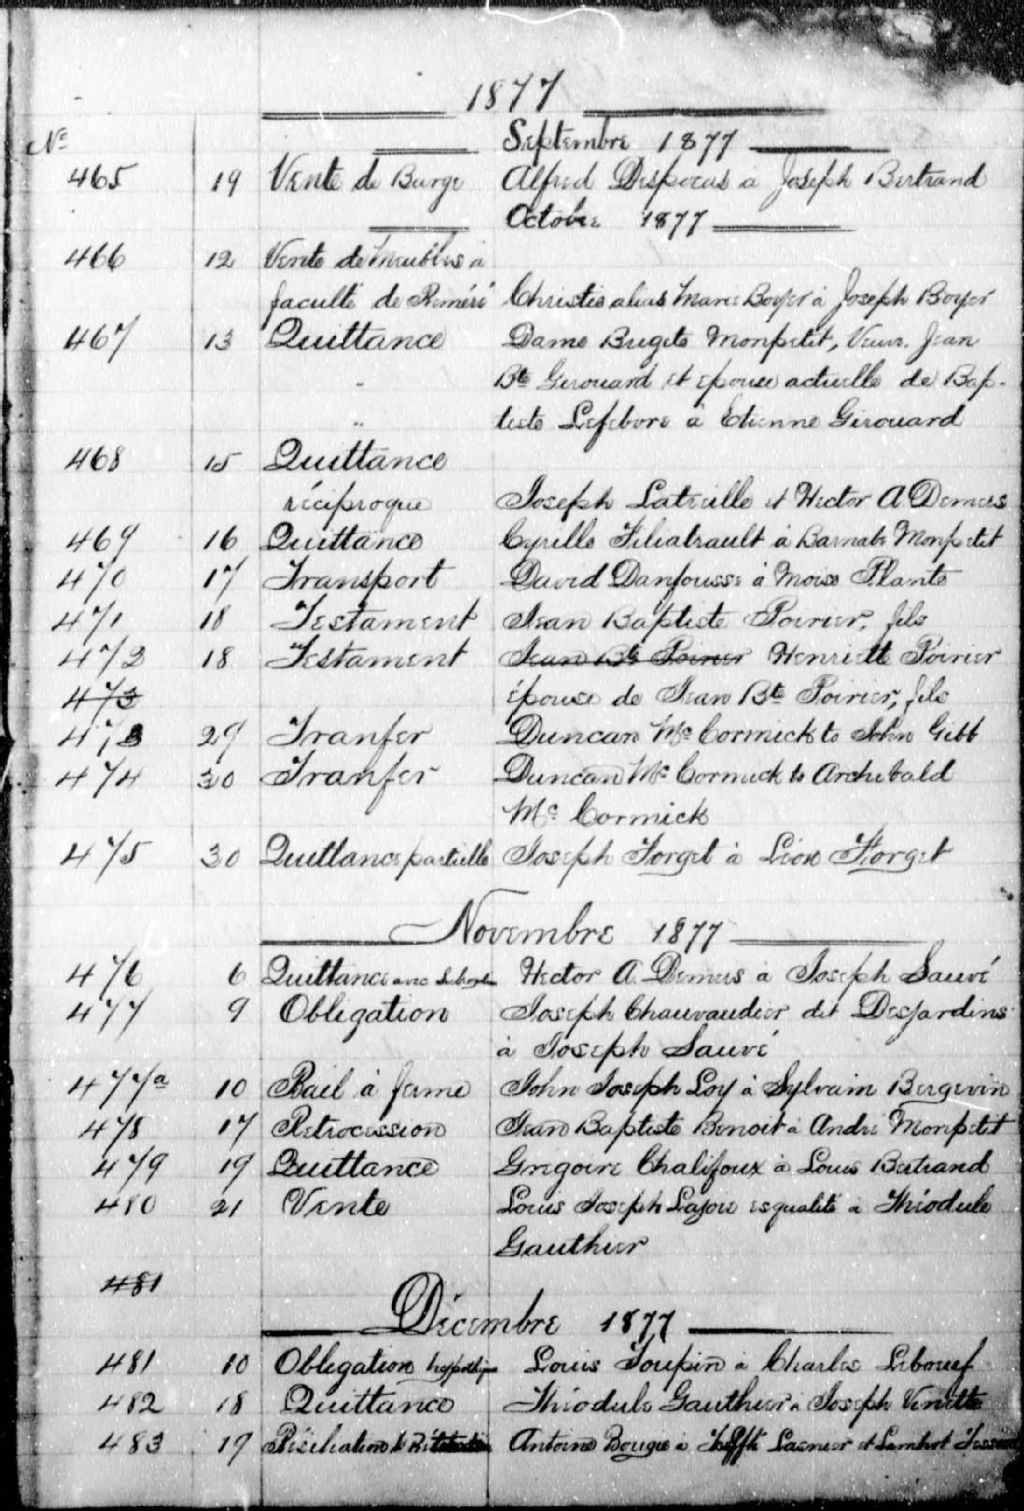 1877
No
Septembre 1877
465 19 Vente de Barge Alfred Despocas à Joseph Bertrand
October 1877
466 12 Vente de Meubles à
faculté de Réméré Christie alias Marie Boyer à Joseph Boyer
467 13 Quittance Dame Brigite Monpetit, Veuve Jean
" Bte Girouard et épouse actuelle de Bap-
" tiste Lefebvre à Etienne Girouard
468 15 Quittance
réciproque Joseph Latreille et Hector A Demers
469 16 Quittance Cyrille Filiatrault à Barnabé Monpetit
470 17 Transport David Danfousse à Moise Plante
471 18 Testament Jean Baptiste Poirier, fils
472 18 Testament Jean Bte Poirier Henriette Poirier
473 épouse de Jean Bte Poirier, fils
473 29 Tranfer Duncan Mc Cormick to John Gibb
474 30 Tranfer Duncan Mc Cormick to Archibald
Mc Cormick
475 30 Quittance partielle Joseph Forget à Léon Forget
Novembre 1877
476 6 Quittance avec Hector A. Demers à Joseph Sauvé
477 9 Obligation Joseph Chauvaudier dit Desjardins
à Joseph Sauvé
477a 10 Bail à ferme John Joseph Loy à Sylvain Bergevin
478 17 Retrocession Jean Baptiste Benoit à André Monpetit
479 19 Quittance Grégoire Chalifoux à Louis Bertrand
480 21 Vente Louis Joseph Lajoie esqualité à Théodule
Gauthier
481
Décembre 1877
481 10 Obligation Louis Toupin à Charles Leboeuf
482 18 Quittance Théodule Gauthier à Joseph Vinette
483 19 Résiliation Antoine Bougie à Lasnier et